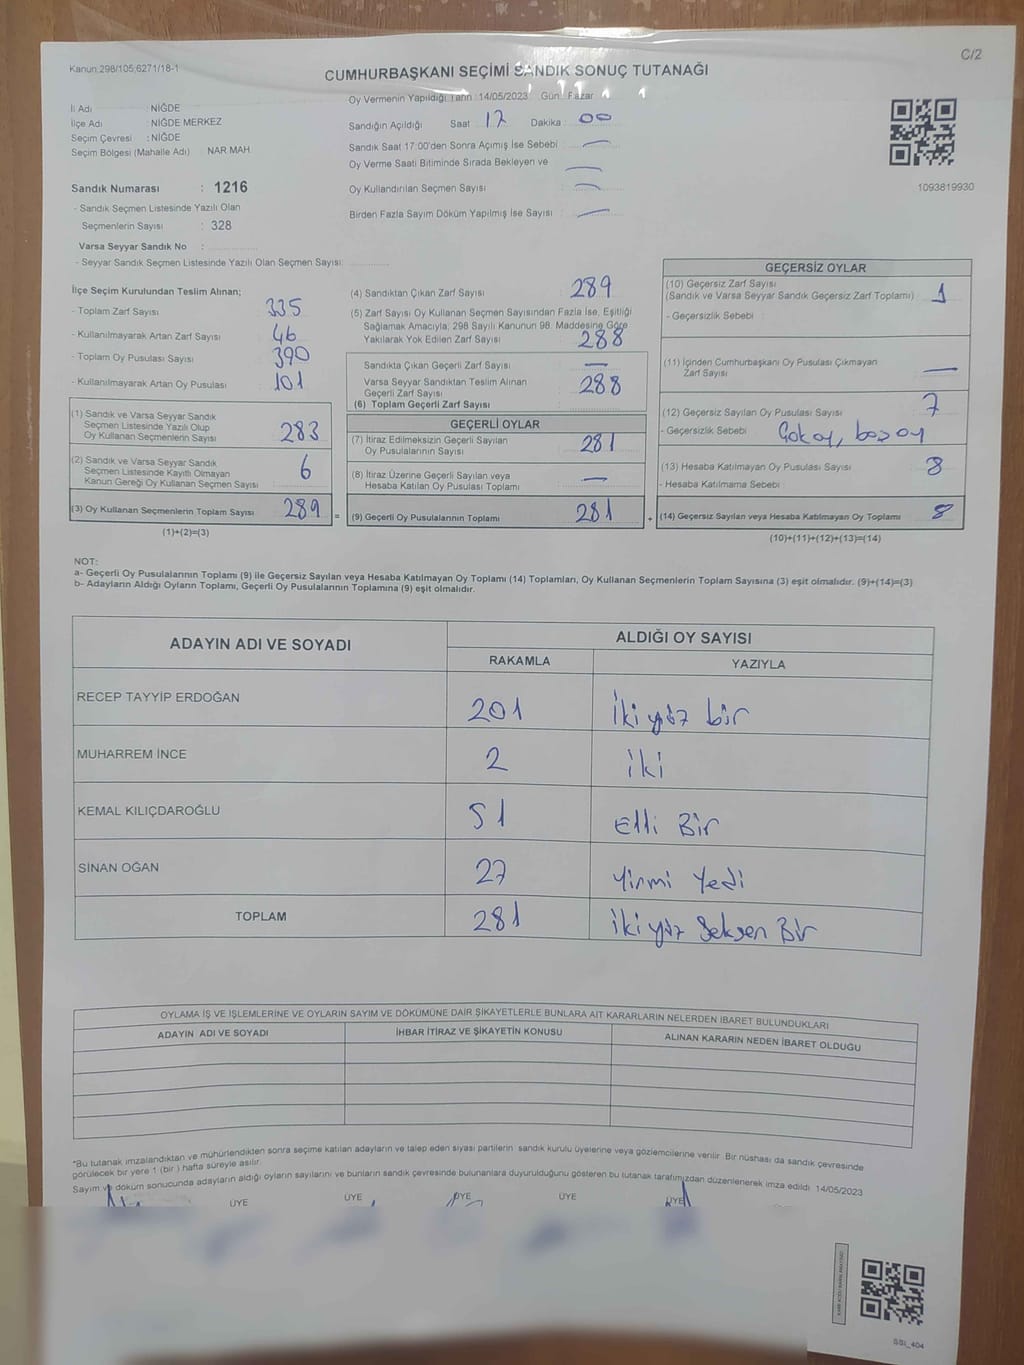 Kanun:298/105;6271/18-1
C/2
CUMHURBAŞKANI SEÇİMİ SANDIK SONUÇ TUTANAĞI
İl Adı : NİĞDE
İlçe Adı : NİĞDE MERKEZ
Seçim Çevresi : NİĞDE
Seçim Bölgesi (Mahalle Adı) : NAR MAH.
Sandık Numarası : 1216
- Sandık Seçmen Listesinde Yazılı Olan
Seçmenlerin Sayısı : 328
Varsa Seyyar Sandık No :
- Seyyar Sandık Seçmen Listesinde Yazılı Olan Seçmen Sayısı:
Oy Vermenin Yapıldığı Tarih : 14/05/2023 Gün : Pazar
Sandığın Açıldığı Saat 17 Dakika 00
Sandık Saat 17:00'den Sonra Açımış İse Sebebi : —
Oy Verme Saati Bitiminde Sırada Bekleyen ve —
Oy Kullandırılan Seçmen Sayısı : —
Birden Fazla Sayım Döküm Yapılmış İse Sayısı : —
1093819930
İlçe Seçim Kurulundan Teslim Alınan;
- Toplam Zarf Sayısı : 335
- Kullanılmayarak Artan Zarf Sayısı : 46
- Toplam Oy Pusulası Sayısı : 390
- Kullanılmayarak Artan Oy Pusulası : 101
(1) Sandık ve Varsa Seyyar Sandık
Seçmen Listesinde Yazılı Olup
Oy Kullanan Seçmenlerin Sayısı : 283
(2) Sandık ve Varsa Seyyar Sandık
Seçmen Listesinde Kayıtlı Olmayan
Kanun Gereği Oy Kullanan Seçmen Sayısı : 6
(3) Oy Kullanan Seçmenlerin Toplam Sayısı : 289 =
(1)+(2)=(3)
(4) Sandıktan Çıkan Zarf Sayısı : 289
(5) Zarf Sayısı Oy Kullanan Seçmen Sayısından Fazla İse, Eşitliği
Sağlamak Amacıyla; 298 Sayılı Kanunun 98. Maddesine Göre
Yakılarak Yok Edilen Zarf Sayısı : 288
Sandıkta Çıkan Geçerli Zarf Sayısı : —
Varsa Seyyar Sandıktan Teslim Alınan
Geçerli Zarf Sayısı : 288
(6) Toplam Geçerli Zarf Sayısı :
GEÇERLİ OYLAR
(7) İtiraz Edilmeksizin Geçerli Sayılan
Oy Pusulalarının Sayısı : 281
(8) İtiraz Üzerine Geçerli Sayılan veya
Hesaba Katılan Oy Pusulası Toplamı : —
(9) Geçerli Oy Pusulalarının Toplamı : 281 +
GEÇERSİZ OYLAR
(10) Geçersiz Zarf Sayısı
(Sandık ve Varsa Seyyar Sandık Geçersiz Zarf Toplamı) : 1
- Geçersizlik Sebebi :
(11) İçinden Cumhurbaşkanı Oy Pusulası Çıkmayan
Zarf Sayısı : —
(12) Geçersiz Sayılan Oy Pusulası Sayısı : 7
- Geçersizlik Sebebi : Çok oy, boş oy
(13) Hesaba Katılmayan Oy Pusulası Sayısı : 8
- Hesaba Katılmama Sebebi :
(14) Geçersiz Sayılan veya Hesaba Katılmayan Oy Toplamı : 8
(10)+(11)+(12)+(13)=(14)
NOT:
a- Geçerli Oy Pusulalarının Toplamı (9) ile Geçersiz Sayılan veya Hesaba Katılmayan Oy Toplamı (14) Toplamları, Oy Kullanan Seçmenlerin Toplam Sayısına (3) eşit olmalıdır. (9)+(14)=(3)
b- Adayların Aldığı Oyların Toplamı, Geçerli Oy Pusulalarının Toplamına (9) eşit olmalıdır.
ADAYIN ADI VE SOYADI ALDIĞI OY SAYISI
RAKAMLA YAZIYLA
RECEP TAYYİP ERDOĞAN 201 İki yüz bir
MUHARREM İNCE 2 İki
KEMAL KILIÇDAROĞLU 51 Elli Bir
SİNAN OĞAN 27 Yirmi Yedi
TOPLAM 281 İki yüz Seksen Bir
OYLAMA İŞ VE İŞLEMLERİNE VE OYLARIN SAYIM VE DÖKÜMÜNE DAİR ŞİKAYETLERLE BUNLARA AİT KARARLARIN NELERDEN İBARET BULUNDUKLARI
ADAYIN ADI VE SOYADI İHBAR İTİRAZ VE ŞİKAYETİN KONUSU ALINAN KARARIN NEDEN İBARET OLDUĞU
*Bu tutanak imzalandıktan ve mühürlendikten sonra seçime katılan adayların ve talep eden siyasi partilerin sandık kurulu üyelerine veya gözlemcilerine verilir. Bir nüshası da sandık çevresinde
görülecek bir yere 1 (bir ) hafta süreyle asılır.
Sayım ve döküm sonucunda adayların aldığı oyların sayılarını ve bunların sandık çevresinde bulunanlara duyurulduğunu gösteren bu tutanak tarafımızdan düzenlenerek imza edildi. 14/05/2023
ÜYE ÜYE ÜYE ÜYE ÜYE
SSI_404